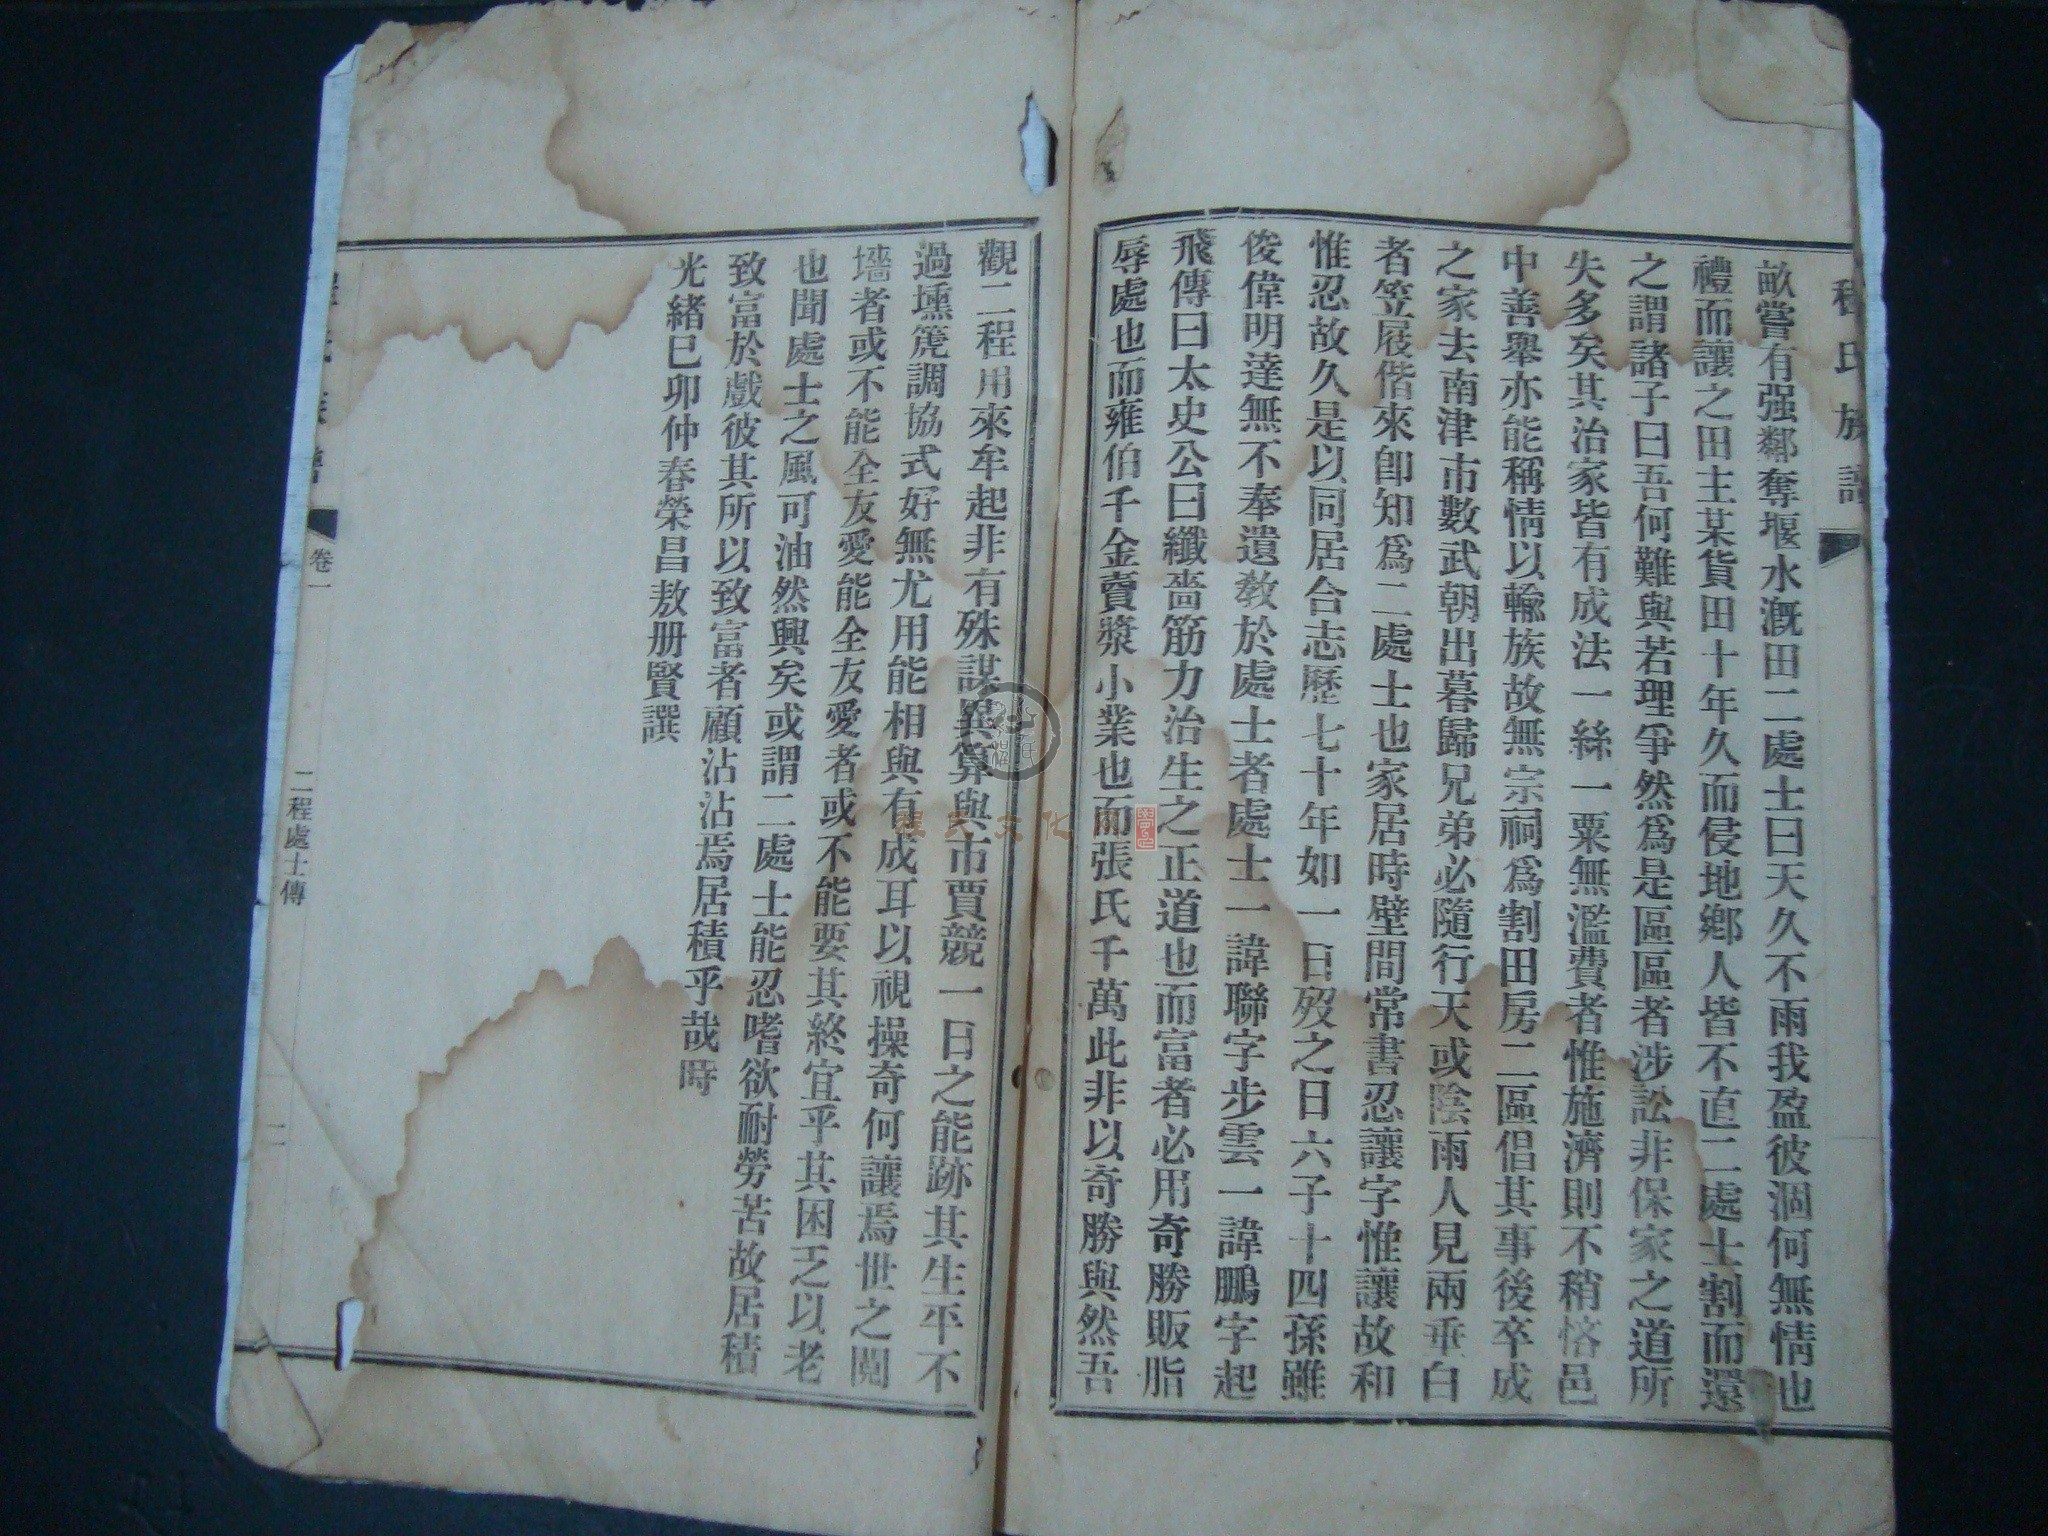 程氏族譜
畝嘗有强鄰奪堰水溉田二處士曰天久不雨我盈彼涸何無情也
禮而讓之田主某貨田十年久而侵地鄉人皆不直二處士割而還
之謂諸子曰吾何難與若理爭然爲是區區者涉訟非保家之道所
失多矣其治家皆有成法一絲一粟無濫費者惟施濟則不稍悋邑
中善舉亦能稱情以輸族故無宗祠爲割田房二區倡其事後卒成
之家去南津市數武朝出暮歸兄弟必隨行天或陰雨人見兩垂白
者笠屐偕來卽知爲二處士也家居時壁間常書忍讓字惟讓故和
惟忍故久是以同居合志歷七十年如一日歿之日六子十四孫雖
俊偉明達無不奉遺敎於處士者處士一諱聯字步雲一諱鵬字起
飛傳曰太史公曰纖嗇筋力治生之正道也而富者必用奇勝販脂
辱處也而雍伯千金賣漿小業也而張氏千萬此非以奇勝與然吾
觀二程用來牟起非有殊謀異算與市賈競一日之能跡其生平不
過壎篪調協式好無尤用能相與有成耳以視操奇何讓焉世之鬩
墻者或不能全友愛能全友愛者或不能要其終宜乎其困乏以老
也聞處士之風可油然興矣或謂二處士能忍嗜欲耐勞苦故居積
致富於戲彼其所以致富者顧沾沾焉居積乎哉時
光緒已卯仲春榮昌敖册賢譔
程氏族譜
卷一
二程處士傳
二
程氏文化网